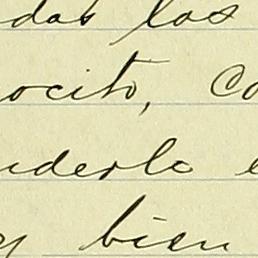 das los
ocito, Co
uderle e
y bien